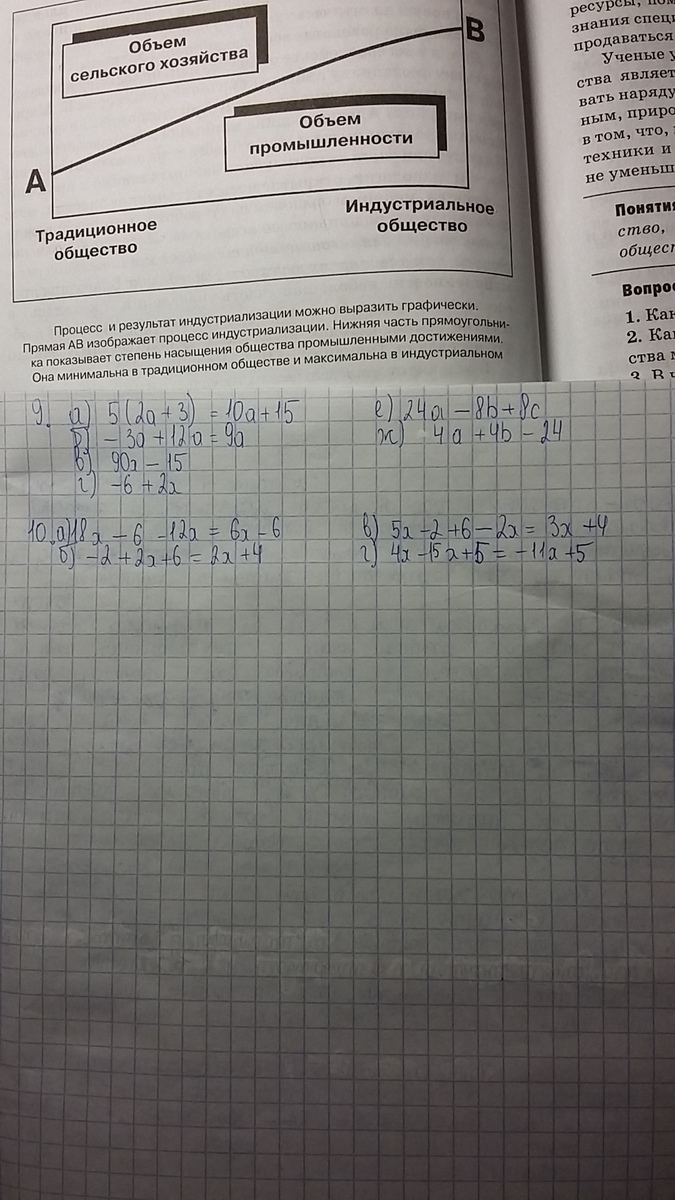 Объем
сельского хозяйства
В
Объем
промышленности
А
Традиционное
общество
Индустриальное
общество
Процесс и результат индустриализации можно выразить графически.
Прямая АВ изображает процесс индустриализации. Нижняя часть прямоугольни-
ка показывает степень насыщения общества промышленными достижениями.
Она минимальна в традиционном обществе и максимальна в индустриальном
ресурсы,
знания
продаваться
Ученые
ства
вать наряду
ным,
в том, что,
техники и
не
ство,
1.
2.
ства
3. В
9. а) 5(2a+3) = 10a+15
б) -3a+12a = 9a
в) 90x - 15
г) -6+2x
е) 24a - 8b + 8c
ж) 4a + 4b - 24
10. а) 18x - 6 - 12x = 6x - 6
б) -2+2x+6 = 2x+4
в) 5x - 2 + 6 - 2x = 3x + 4
г) 4x - 15x + 5 = -11x + 5